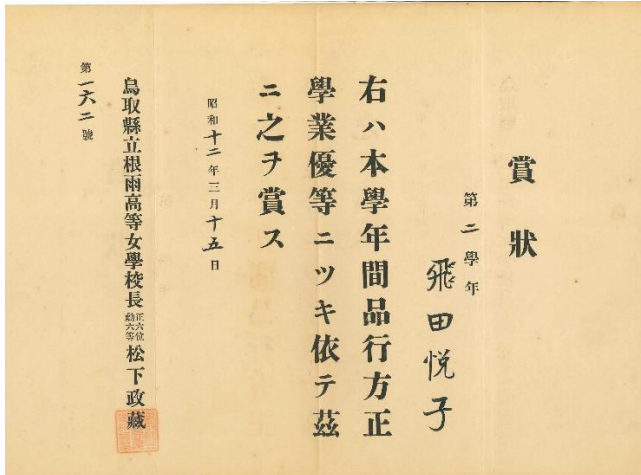 賞狀
第二學年
飛田悦子
右ハ本學年間品行方正
學業優等ニツキ依テ茲
ニ之ヲ賞ス
昭和十二年三月十五日
鳥取縣立根雨高等女學校長正六位勳六等松下政藏
第一六二號